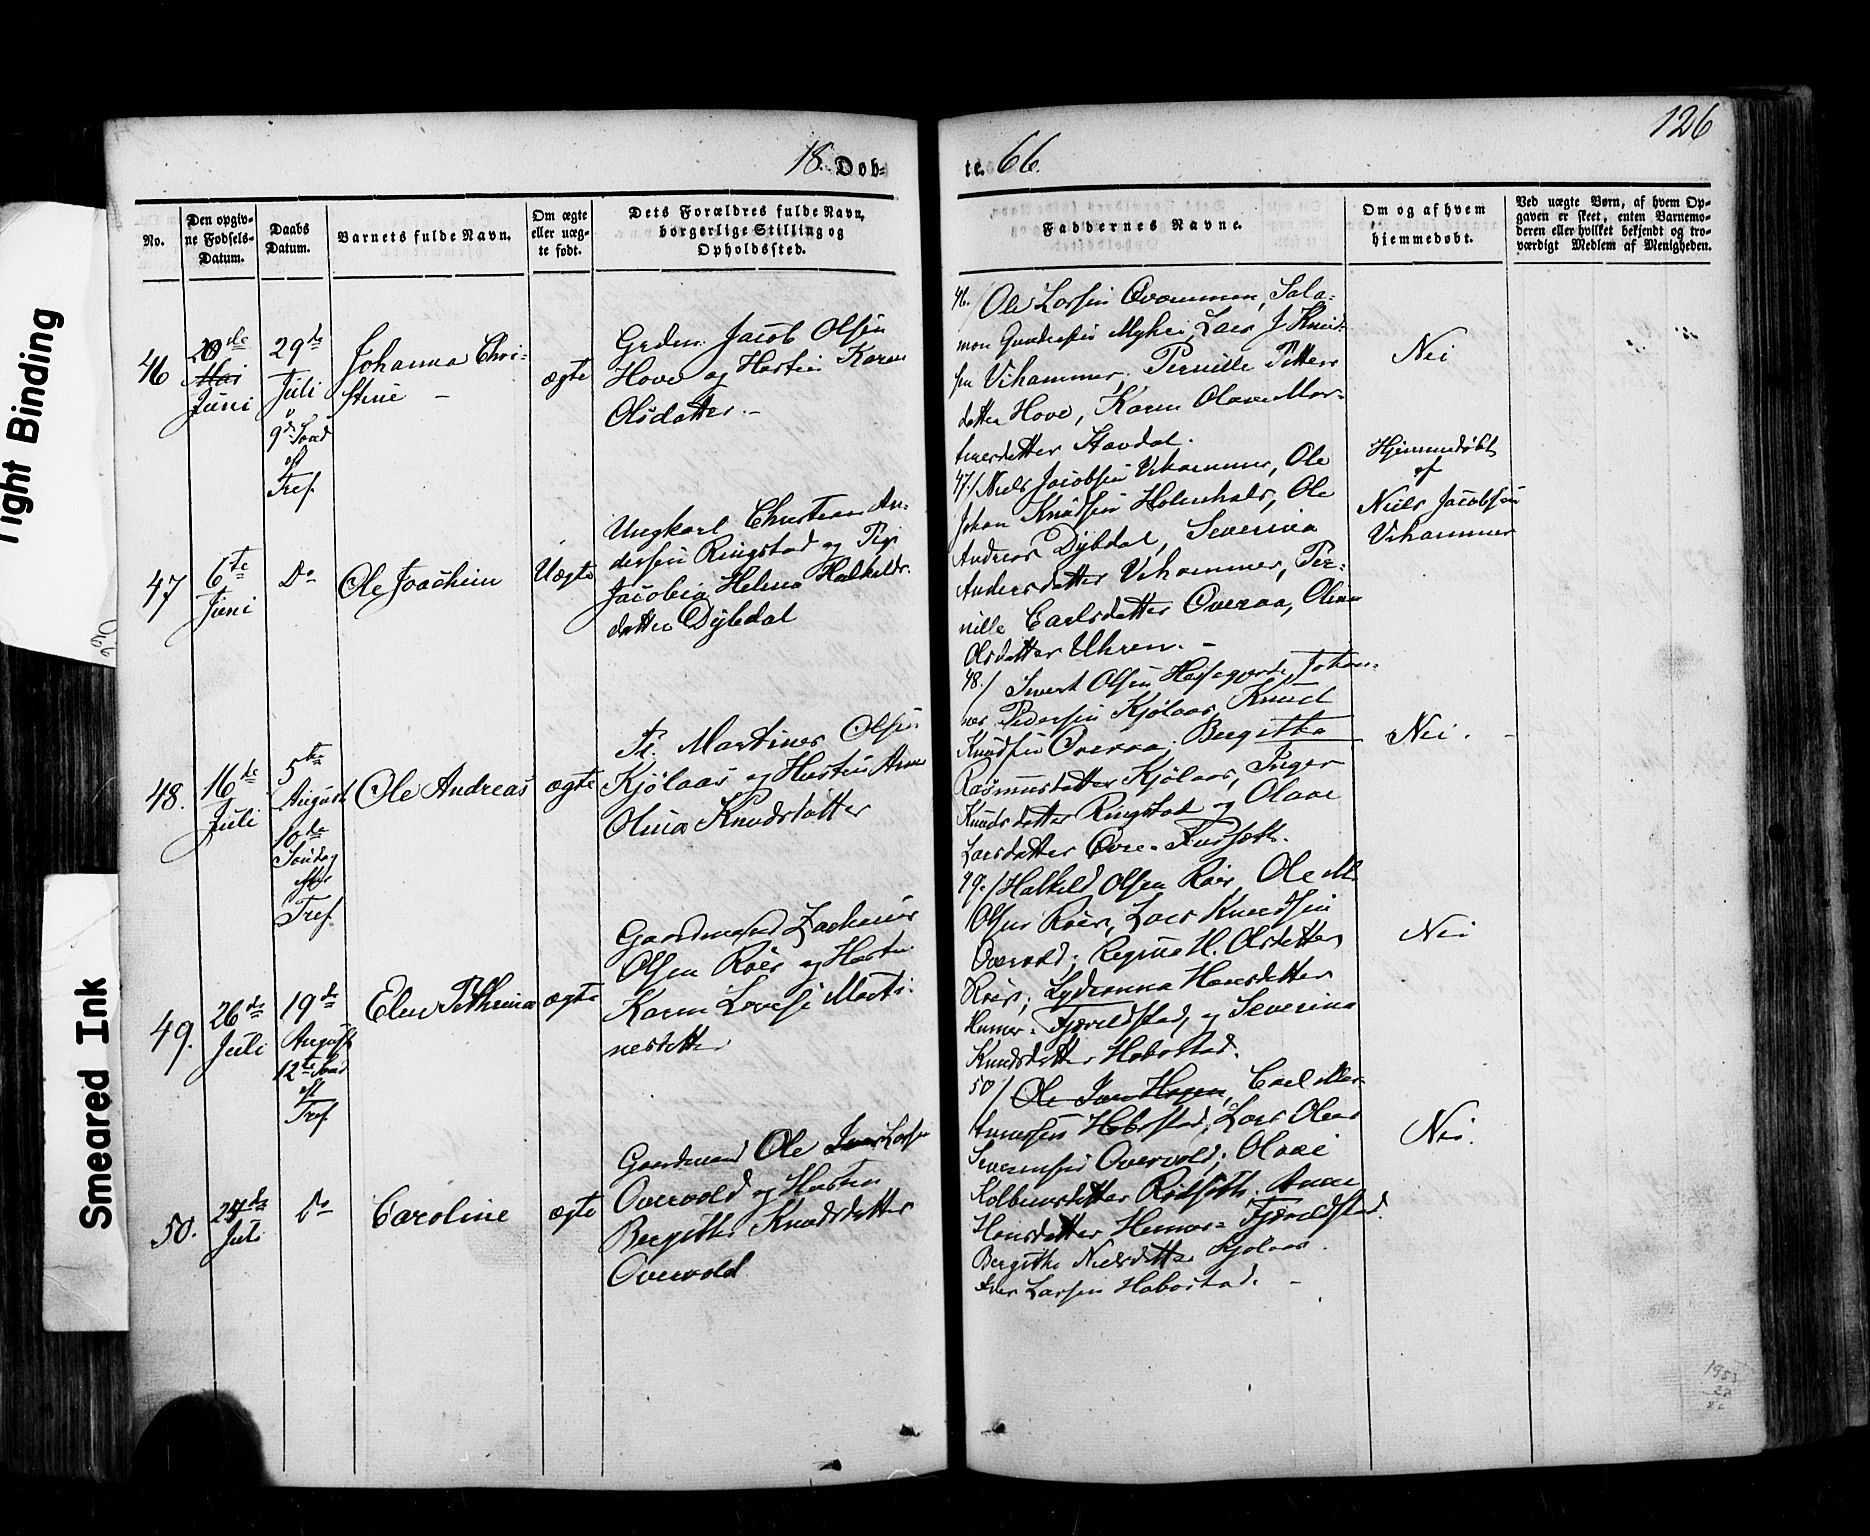 126
18 Døb-
te. 66.
No.
Den opgiv-
ne Fødsels-
Datum.
Daabs
Datum.
Barnets fulde Navn.
Om ægte
eller uæg-
te født.
Dets Forældres fulde Navn,
borgerlige Stilling og
Opholdssted.
Faddernes Navne.
Om og af hvem
hjemmedøbt.
Ved uægte Børn, af hvem Op-
gaven er skeet, enten Barnemo-
deren eller hvilket bekjendt og tro-
værdigt Medlem af Menigheden.
46
Mai
Juni
29de
Juli
9d Sønd
ef
Tref.
Johanna Chri-
stine -
ægte
Grdm. Jacob Olsen
Hove og Hustru Karen
Olsdatter. -
46. Ole Larsen Qvammen, Sala-
mon Gundersen Myhre, Lars J. Knud-
sen Vihammer. Pernille Petters
datter Hove, Karen Olave Mar-
tinesdatter Havdal.
Nei
47
6te
Juni
Do
Ole Joachim
Uægte
Ungkarl Christian An-
dersen Ringstad og Pige
Jacobia Helena Halkilds-
datter Dybdal
47/ Niels Jacobsen Vihammer, Ole
Johan Knudsen Holmhals, Ole
Andreas Dybdal, Severina
Andersdatter Vihammer, Per-
nille Carlsdatter Overaa, Olina
Olsdatter Uhren. -
Hjemmedøbt
af
Niels Jacobsen
Vihammer
48.
16de
Juli
5te
August
10de
Søndag
efter
Tref.
Ole Andreas
ægte
Martines Olsen
Kjølaas og Hustru Anne
Olina Knudsdatter
48./ Sivert Olsen Johan-
nes Pedersen Kjølaas, Knud
Knudsen Overaa, Bergitha
Rasmusdatter Kjølaas, Inger
Knudsdatter Ringstad og Olave
Larsdatter Øvre-
Nei. -
49.
26de
Juli
19de
August
12te Sønd
ef
Tref.
Elen Pethrina
ægte
Gaardmand Zacharias
Olsen Røer og Hustru
Karen Lovise Marti-
nesdatter
49./ Halkild Olsen Røer, Ole M.
Olsen Røer, Lars Knudsen
Overvold, Regine H. Olsdatter
Røer, Lydianna Hansdatter
Humor- Fjæreldstad, og Severina
Knudsdatter Haborstad.
Nei
50.
Juli
Do
Caroline
ægte
Gaardmand Ole Larsen
Overvold og Hustru
Bergitha Knudsdatter
Overvold
50/ Ole Iver Hagen, Carl Mar-
tinussen Haborstad, Lars Olaus
Severinsen Overvold, Olave
Kolbeinsdatter Rødseth. Anne
Hansdatter Humor- Fjæreldstad.
Bergitha Nielsdatter Kjølaas.
Larsen Haborstad. -
Nei.
Tight Binding
Smeared Ink